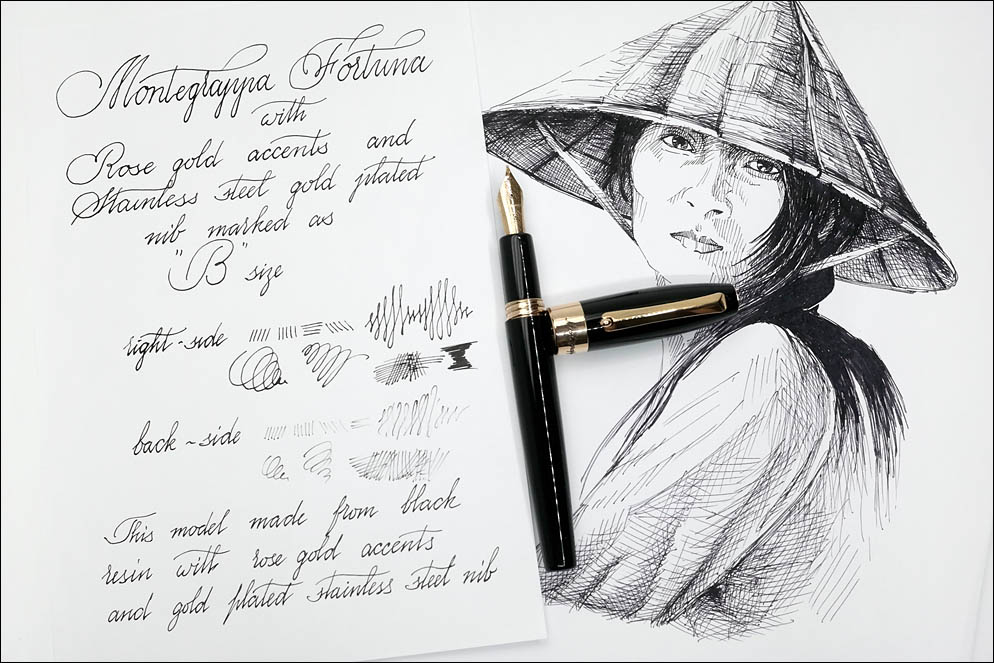 Montegrappa Fortuna
with
Rose gold accents and
Stainless steel gold plated
nib marked as
"B" size
right-side
back-side
This model made from black
resin with rose gold accents
and gold plated stainless steel nib